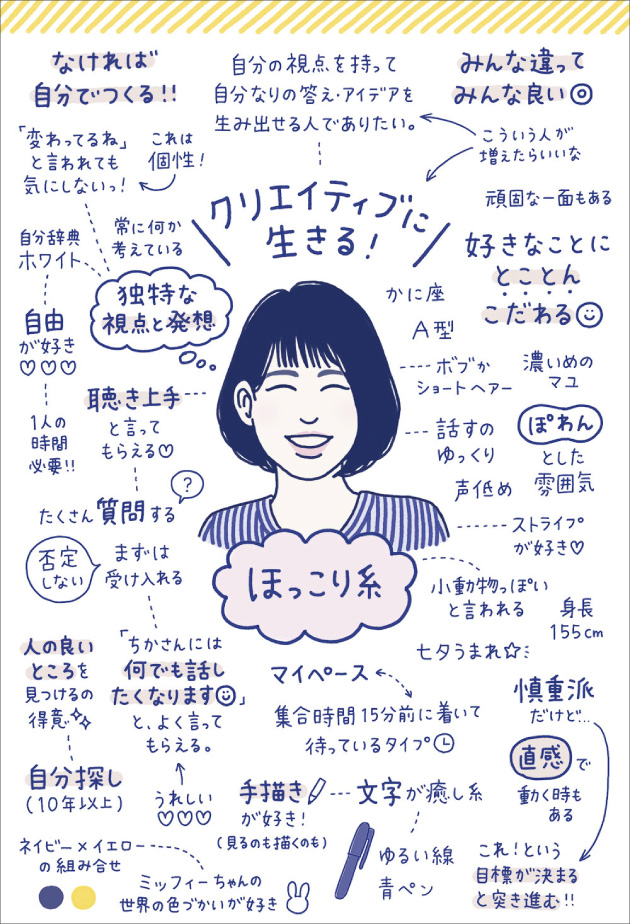 なければ
自分でつくる!!
自分の視点を持って
自分なりの答え・アイデアを
生み出せる人でありたい。
みんな違って
みんな良い◎
こういう人が
増えたらいいな
「変わってるね」
と言われても
気にしないっ!
これは
個性!
クリエイティブに
生きる!
頑固な一面もある
自分辞典
ホワイト
常に何か
考えている
好きなことに
とことん
こだわる
独特な
視点と発想
かに座
A型
自由
が好き
♡♡♡
ボブか
ショートヘアー
濃いめの
マユ
聴き上手
と言って
もらえる♡
1人の
時間
必要!!
話すの
ゆっくり
ぽわん
とした
雰囲気
声低め
?
たくさん質問する
ストライプ
が好き♡
否定
しない
まずは
受け入れる
ほっこり系
小動物っぽい
と言われる
身長
155cm
七夕うまれ☆
人の良い
ところを
見つけるの
得意
「ちかさんには
何でも話し
たくなります」
と、よく言って
もらえる。
うれしい
♡♡♡
マイペース
集合時間15分前に着いて
待っているタイプ
慎重派
だけど…
直感で
動く時も
ある
これ!という
目標が決まる
と突き進む!!
自分探し
(10年以上)
手描き
が好き!
(見るのも描くのも)
文字が癒し系
ゆるい線
青ペン
ネイビー×イエロー
の組み合せ
ミッフィーちゃんの
世界の色づかいが好き